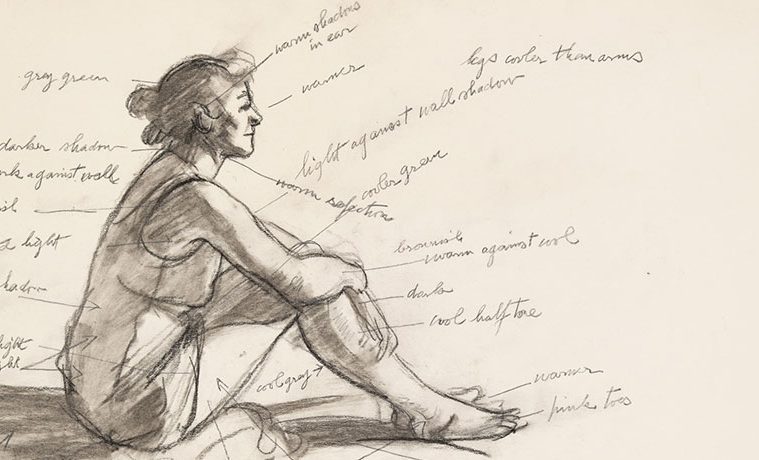 warm shadows
in ear
legs cooler than arms
gray green
warmer
light against wall shadow
darker shadow
cooler green
against wall
warm
light
brownish
warm against cool
dark
cool half tone
light
cool gray
warmer
pink toes